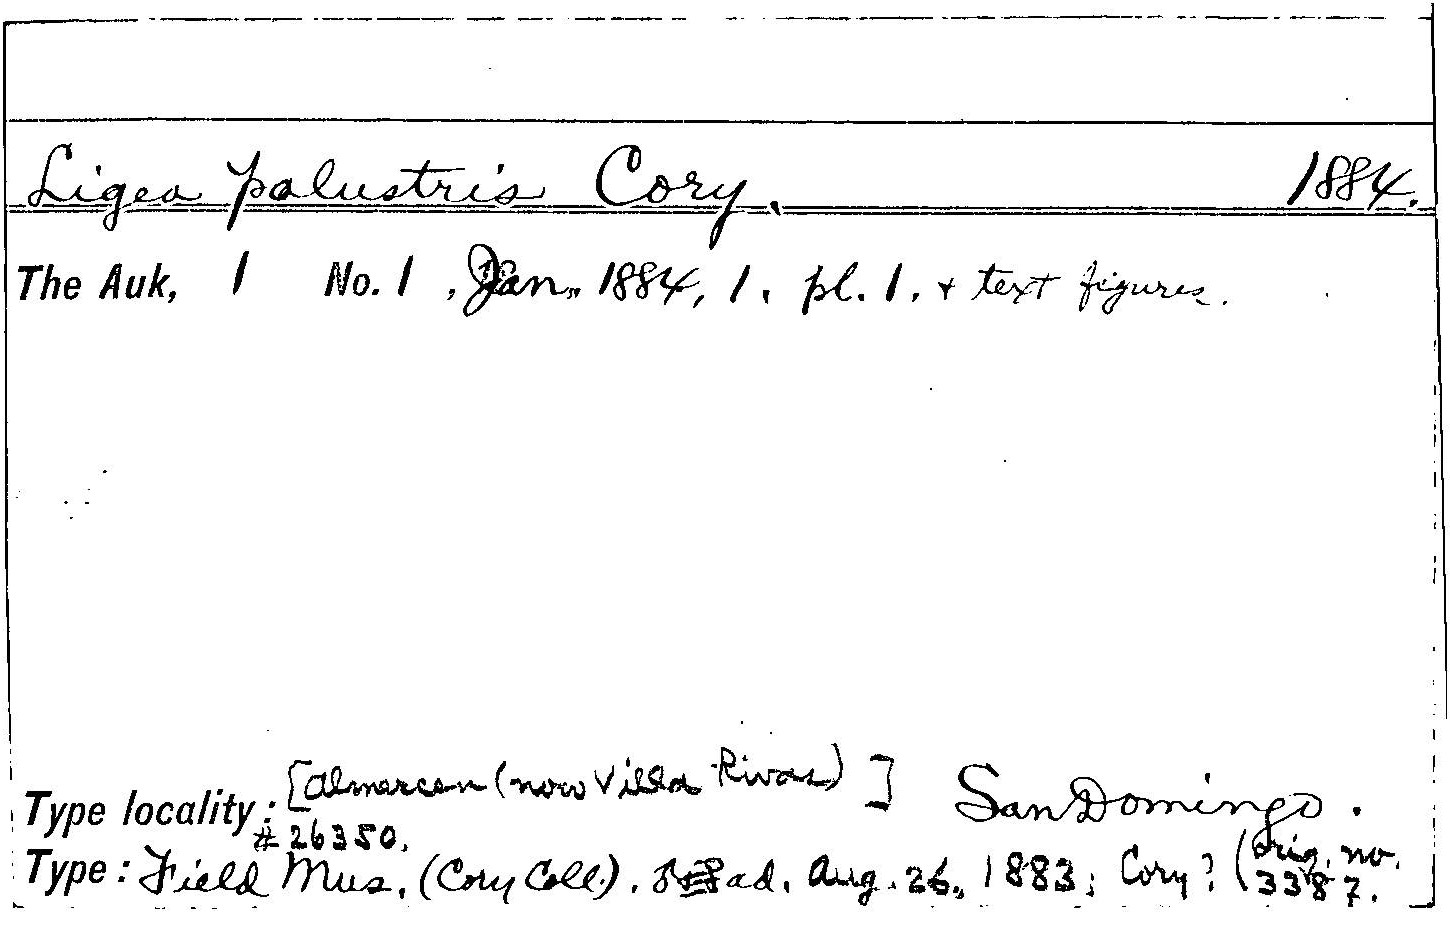 Ligea palustris Cory. 1884.
The Auk, 1 No. 1, Jan., 1884, 1. pl. 1. + text figures.
Type locality: [Almercen (now Villa Rivas)] San Domingo.
#26350.
Type: Field Mus. (Cory Coll.). ad. Aug. 26, 1883; Cory? (Orig. no. 3387.